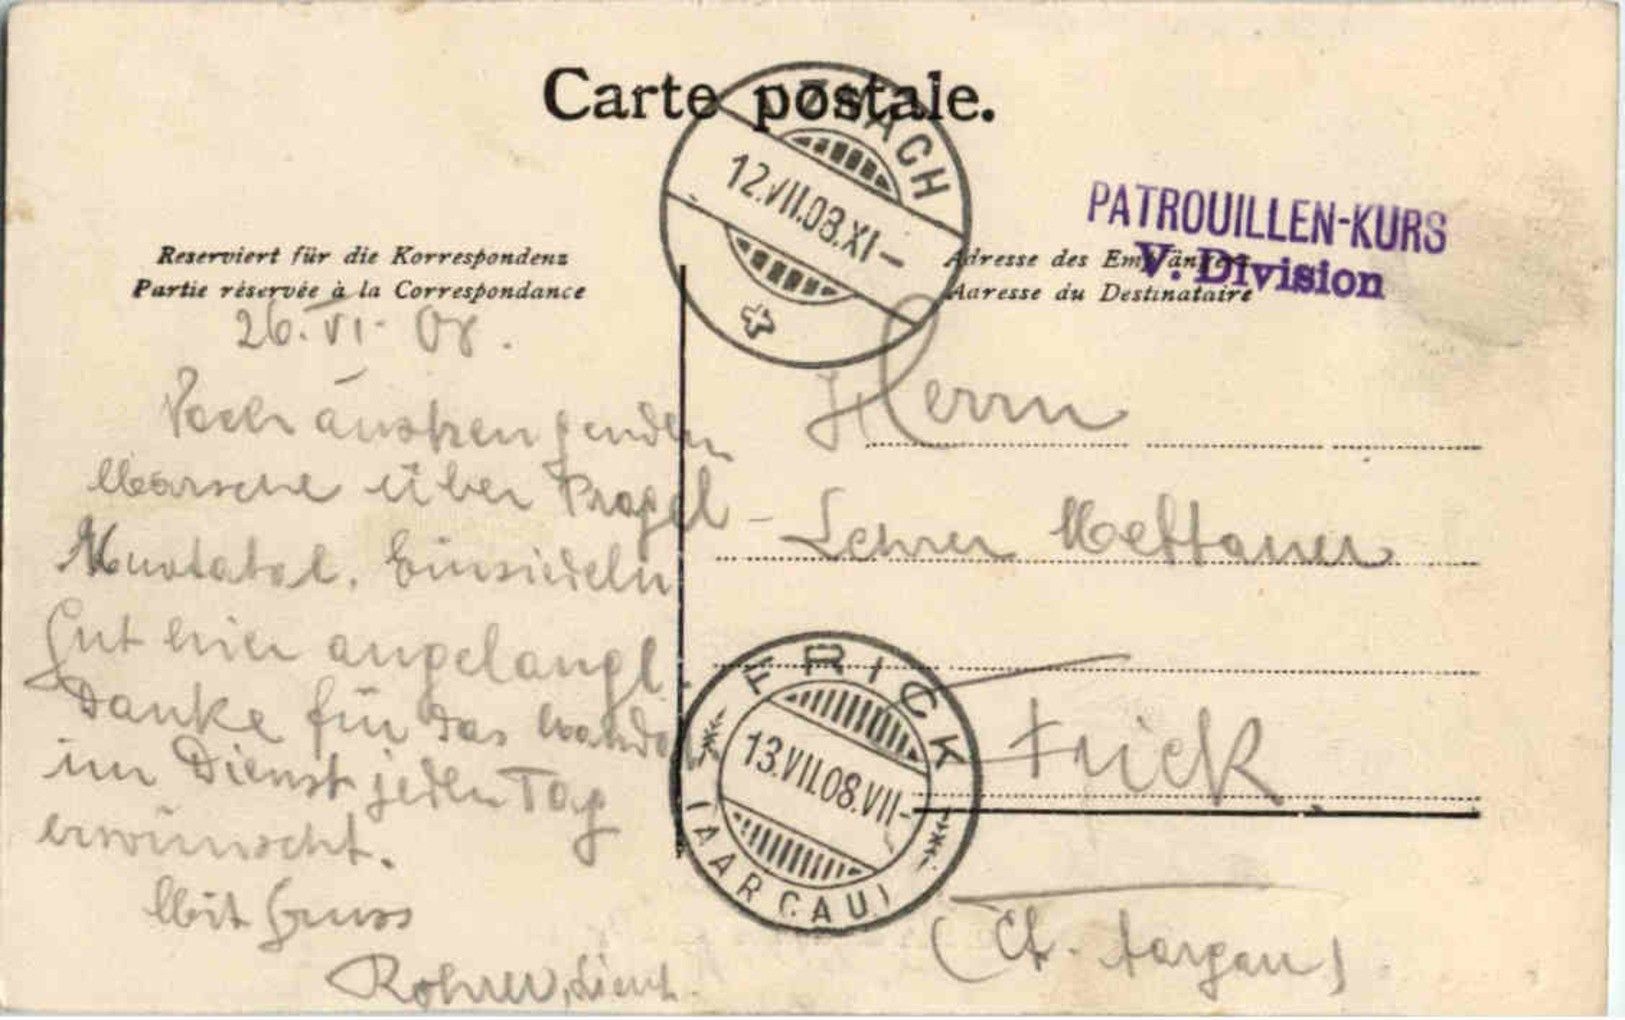 Carte postale.
UZNACH
12.VII.08.XI-
PATROUILLEN-KURS
V. Division
Reserviert für die Korrespondenz
Partie réservée à la Correspondance
Adresse des Empfängers
Adresse du Destinataire
26. VI. 08.
Nach anstrengenden
Märsche über Pragel
Muotatal. Einsiedeln
Gut hier angelangt.
Danke für das
im Dienst jeden Tag
erwünscht.
Mit Gruss
Rohrer, Lieut.
Herrn
Lehrer Mettauer
Frick.
(Ct. Aargau)
FRICK
13.VII.08.VII-
(AARGAU)